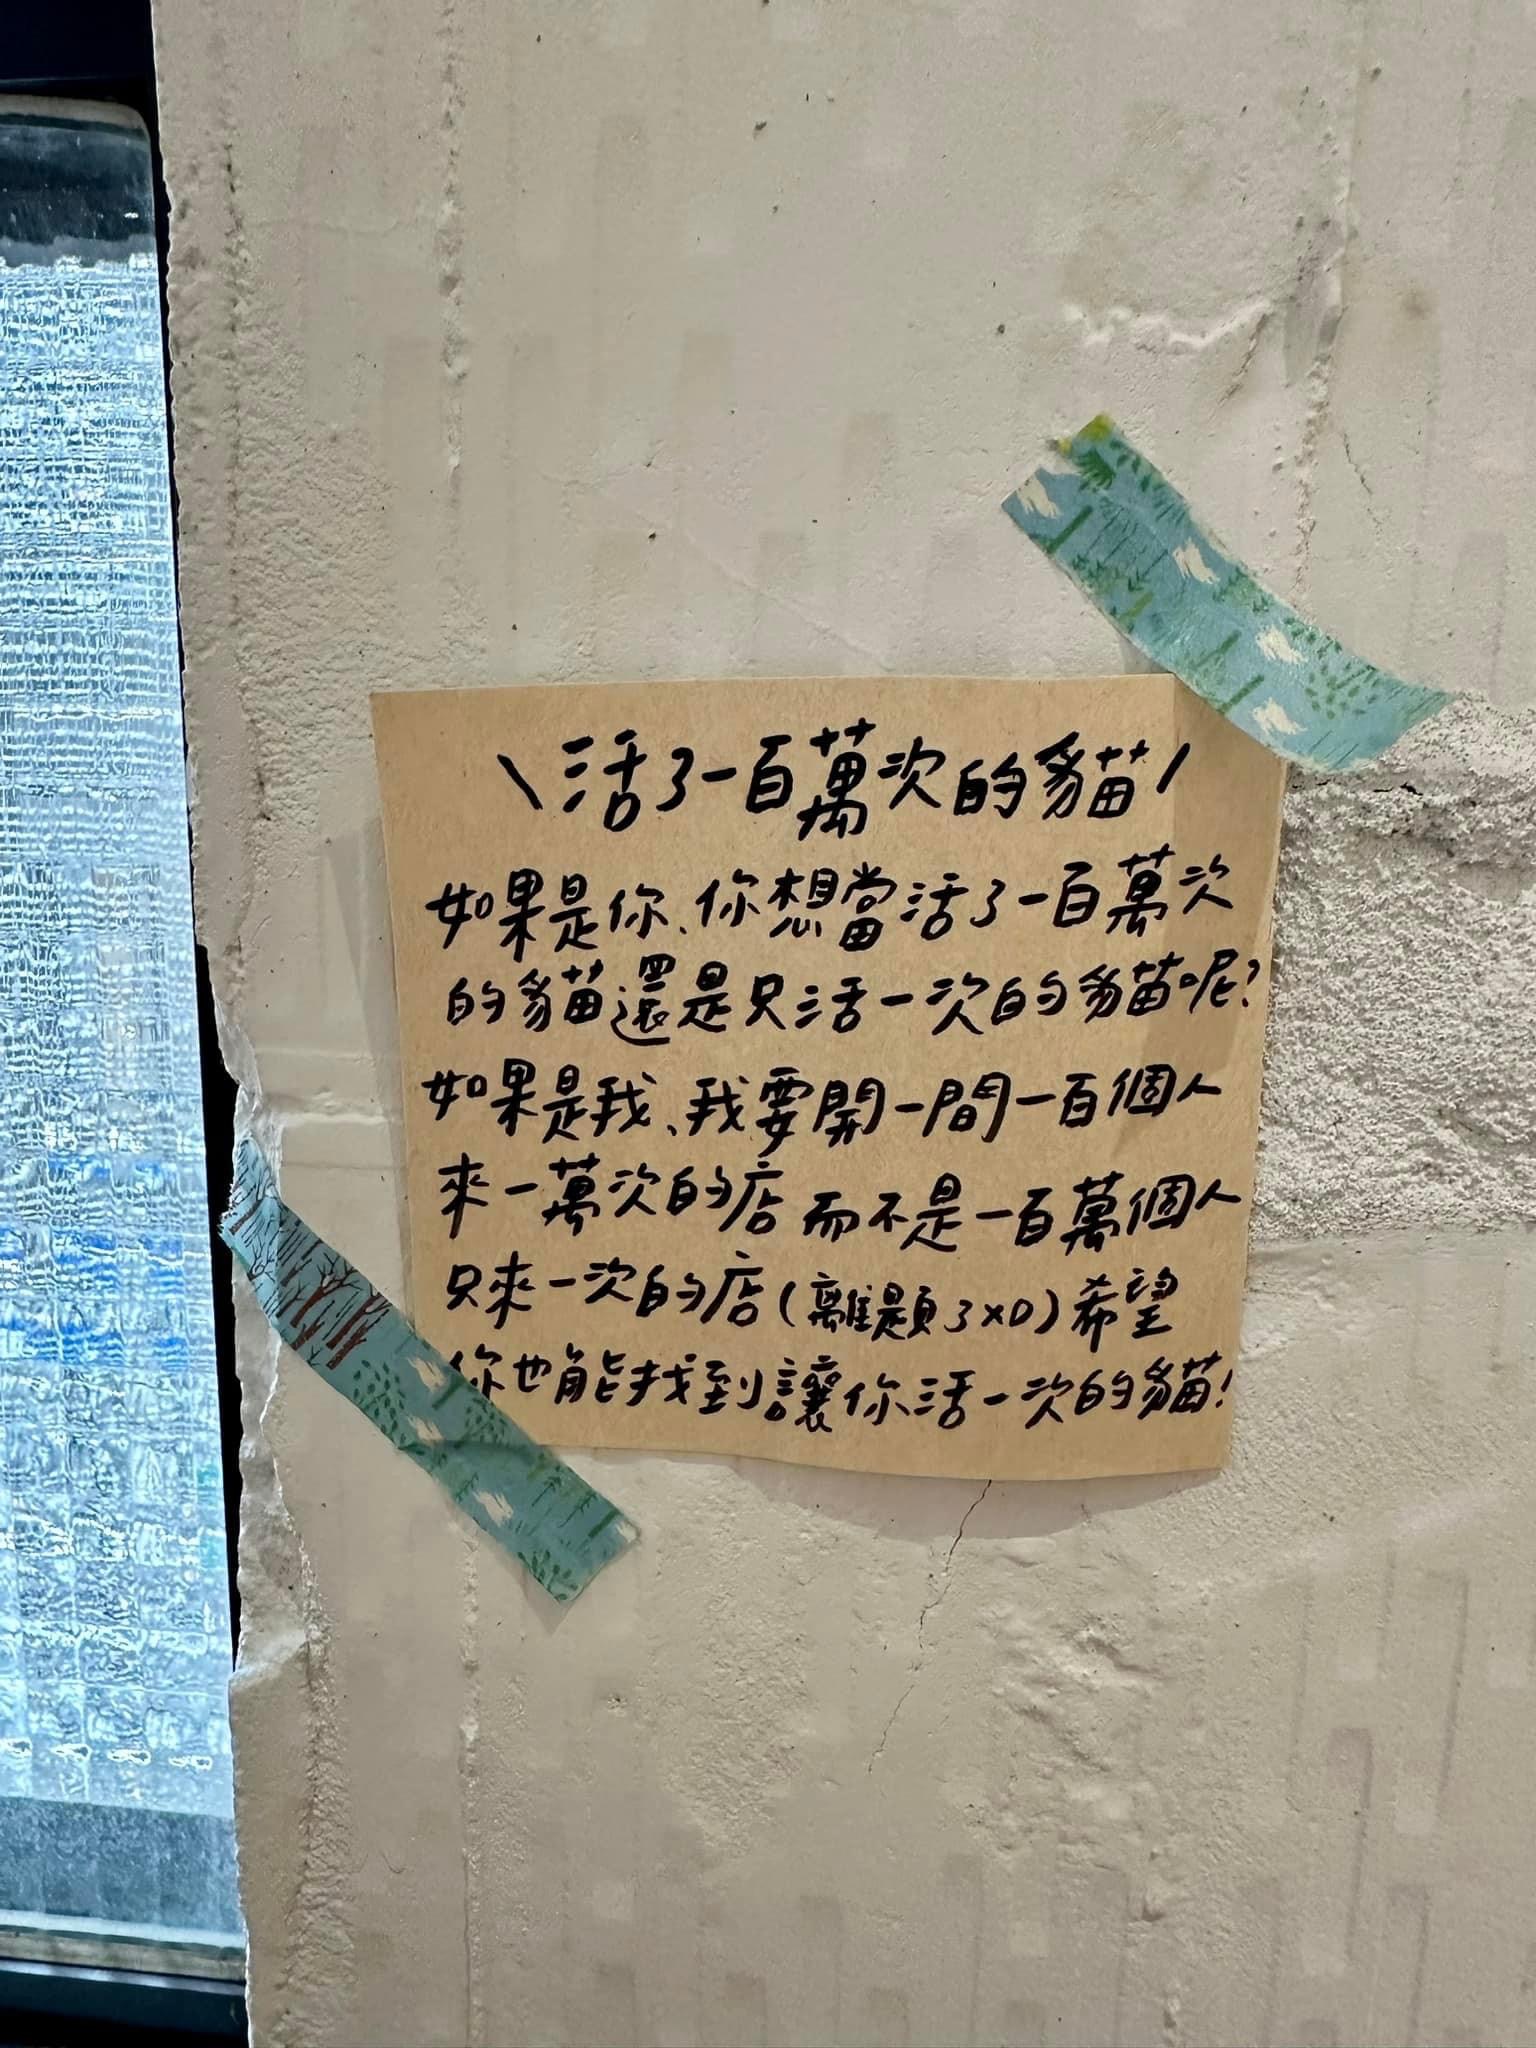 \活了一百萬次的貓/
如果是你、你想當活了一百萬次
的貓還是只活一次的貓呢?
如果是我、我要開一間一百個人
來一萬次的店而不是一百萬個人
只來一次的店(離題了XD)希望
你也能找到讓你活一次的貓!